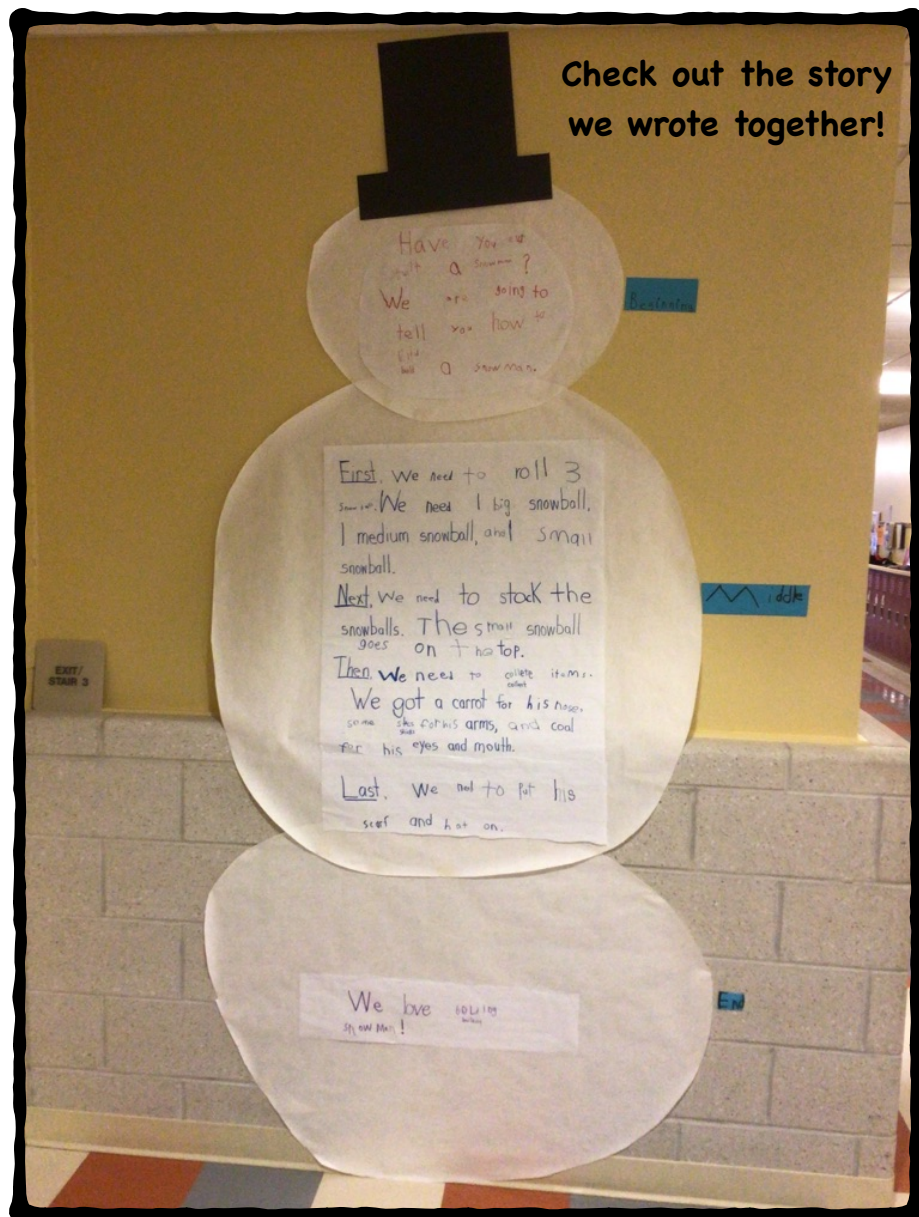 Check out the story
we wrote together!
Have you
a snowman?
We are going to
tell you how to
a snowman.
Beginning
First, We need to roll 3
We need 1 big snowball,
1 medium snowball, and small
snowball.
Next, We need to stack the
snowballs. The small snowball
goes on the top.
Then, We need to collete items.
collect
We got a carrot for his nose,
some for his arms, and coal
sticks
for his eyes and mouth.
Last, We ned to Put his
scarf and hat on.
Middle
We love
snowMan!
End
EXIT/
STAIR 3